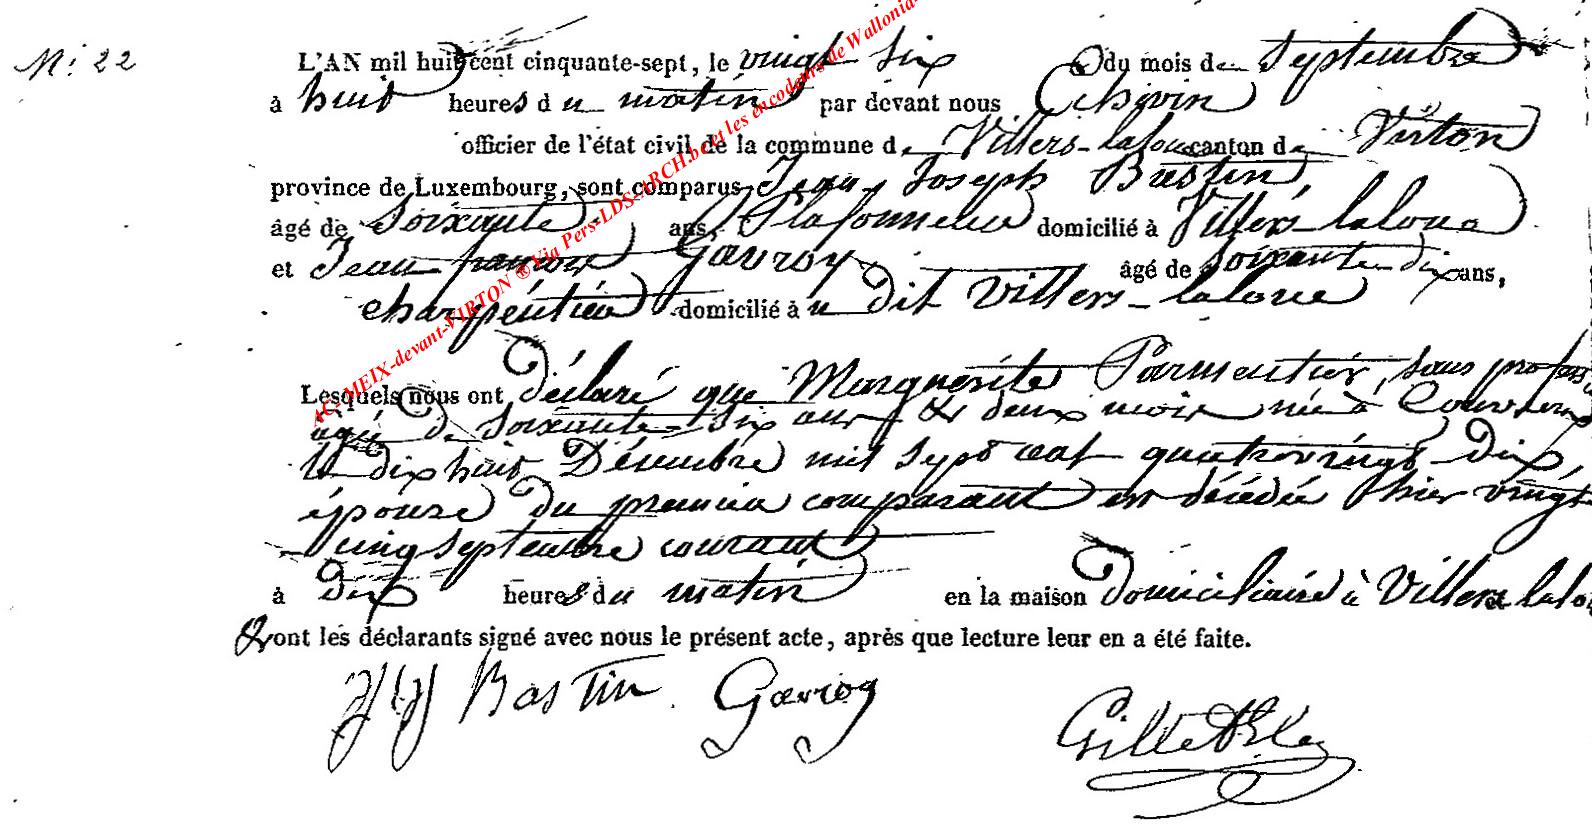 N: 22
L'AN mil huit cent cinquante-sept, le vingt six du mois de septembre
à huit heures du matin par devant nous
officier de l'état civil de la commune de Villers-laloue canton de Virton
province de Luxembourg, sont comparus Jean Joseph Bastin
âgé de soixante ans, Plafonneur domicilié à Villers-laloue
et Jean françois Gavroy âgé de soixante dix ans,
charpentier domicilié à u dit Villers-laloue
Lesquels nous ont déclaré que Marguerite Parmentier, sans profess
agée de soixante-six ans & deux mois née à
le dix huit Décembre mil sept cent quatrevingt-dix
épouse du premier comparant est décédée hier vingt
cinq septembre courant
à dix heures du matin en la maison domiciliaire à Villers lalo
& ont les déclarants signé avec nous le présent acte, après que lecture leur en a été faite.
JJ Bastin Gavroy
AC-MEIX-devant-VIRTON ® Via Pers-LDS-ARCH.be et les encodeurs de Wallonia-